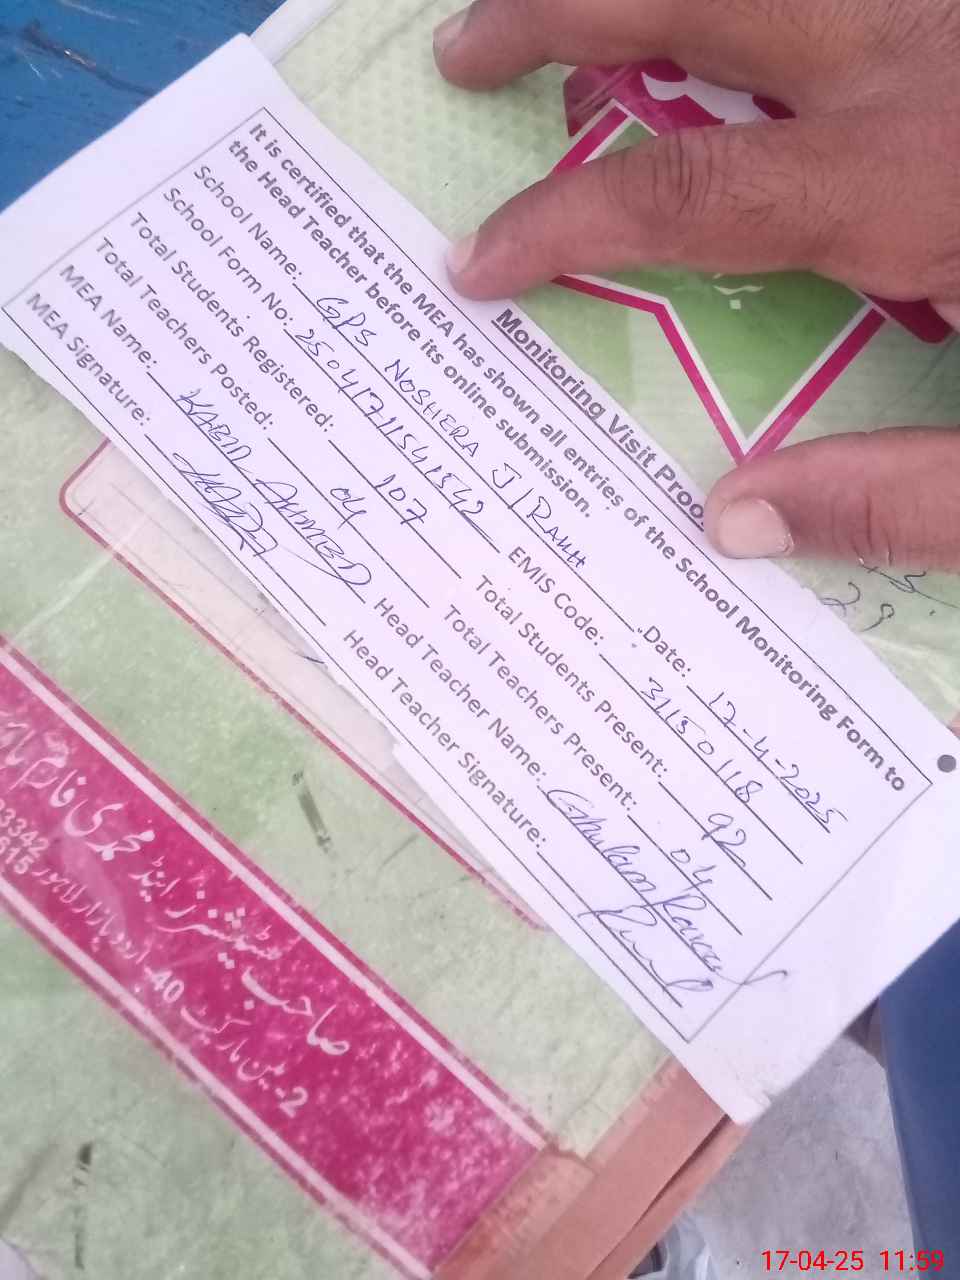 Monitoring Visit Proo
It is certified that the MEA has shown all entries of the School Monitoring Form to
the Head Teacher before its online submission.
School Name: GPS NOSHERA J/RAKH Date: 17-4-2025
School Form No: EMIS Code: 31150118
Total Students Registered: 107 Total Students Present: 92
Total Teachers Posted: 04 Total Teachers Present: 04
MEA Name: KABIR AHMED Head Teacher Name: Ghulam Rasul
MEA Signature: Head Teacher Signature:
صاحب سٹیشنرز اینڈ محمدی فارم
2- مین مارکیٹ 40- اردو بازار لاہور
17-04-25 11:59